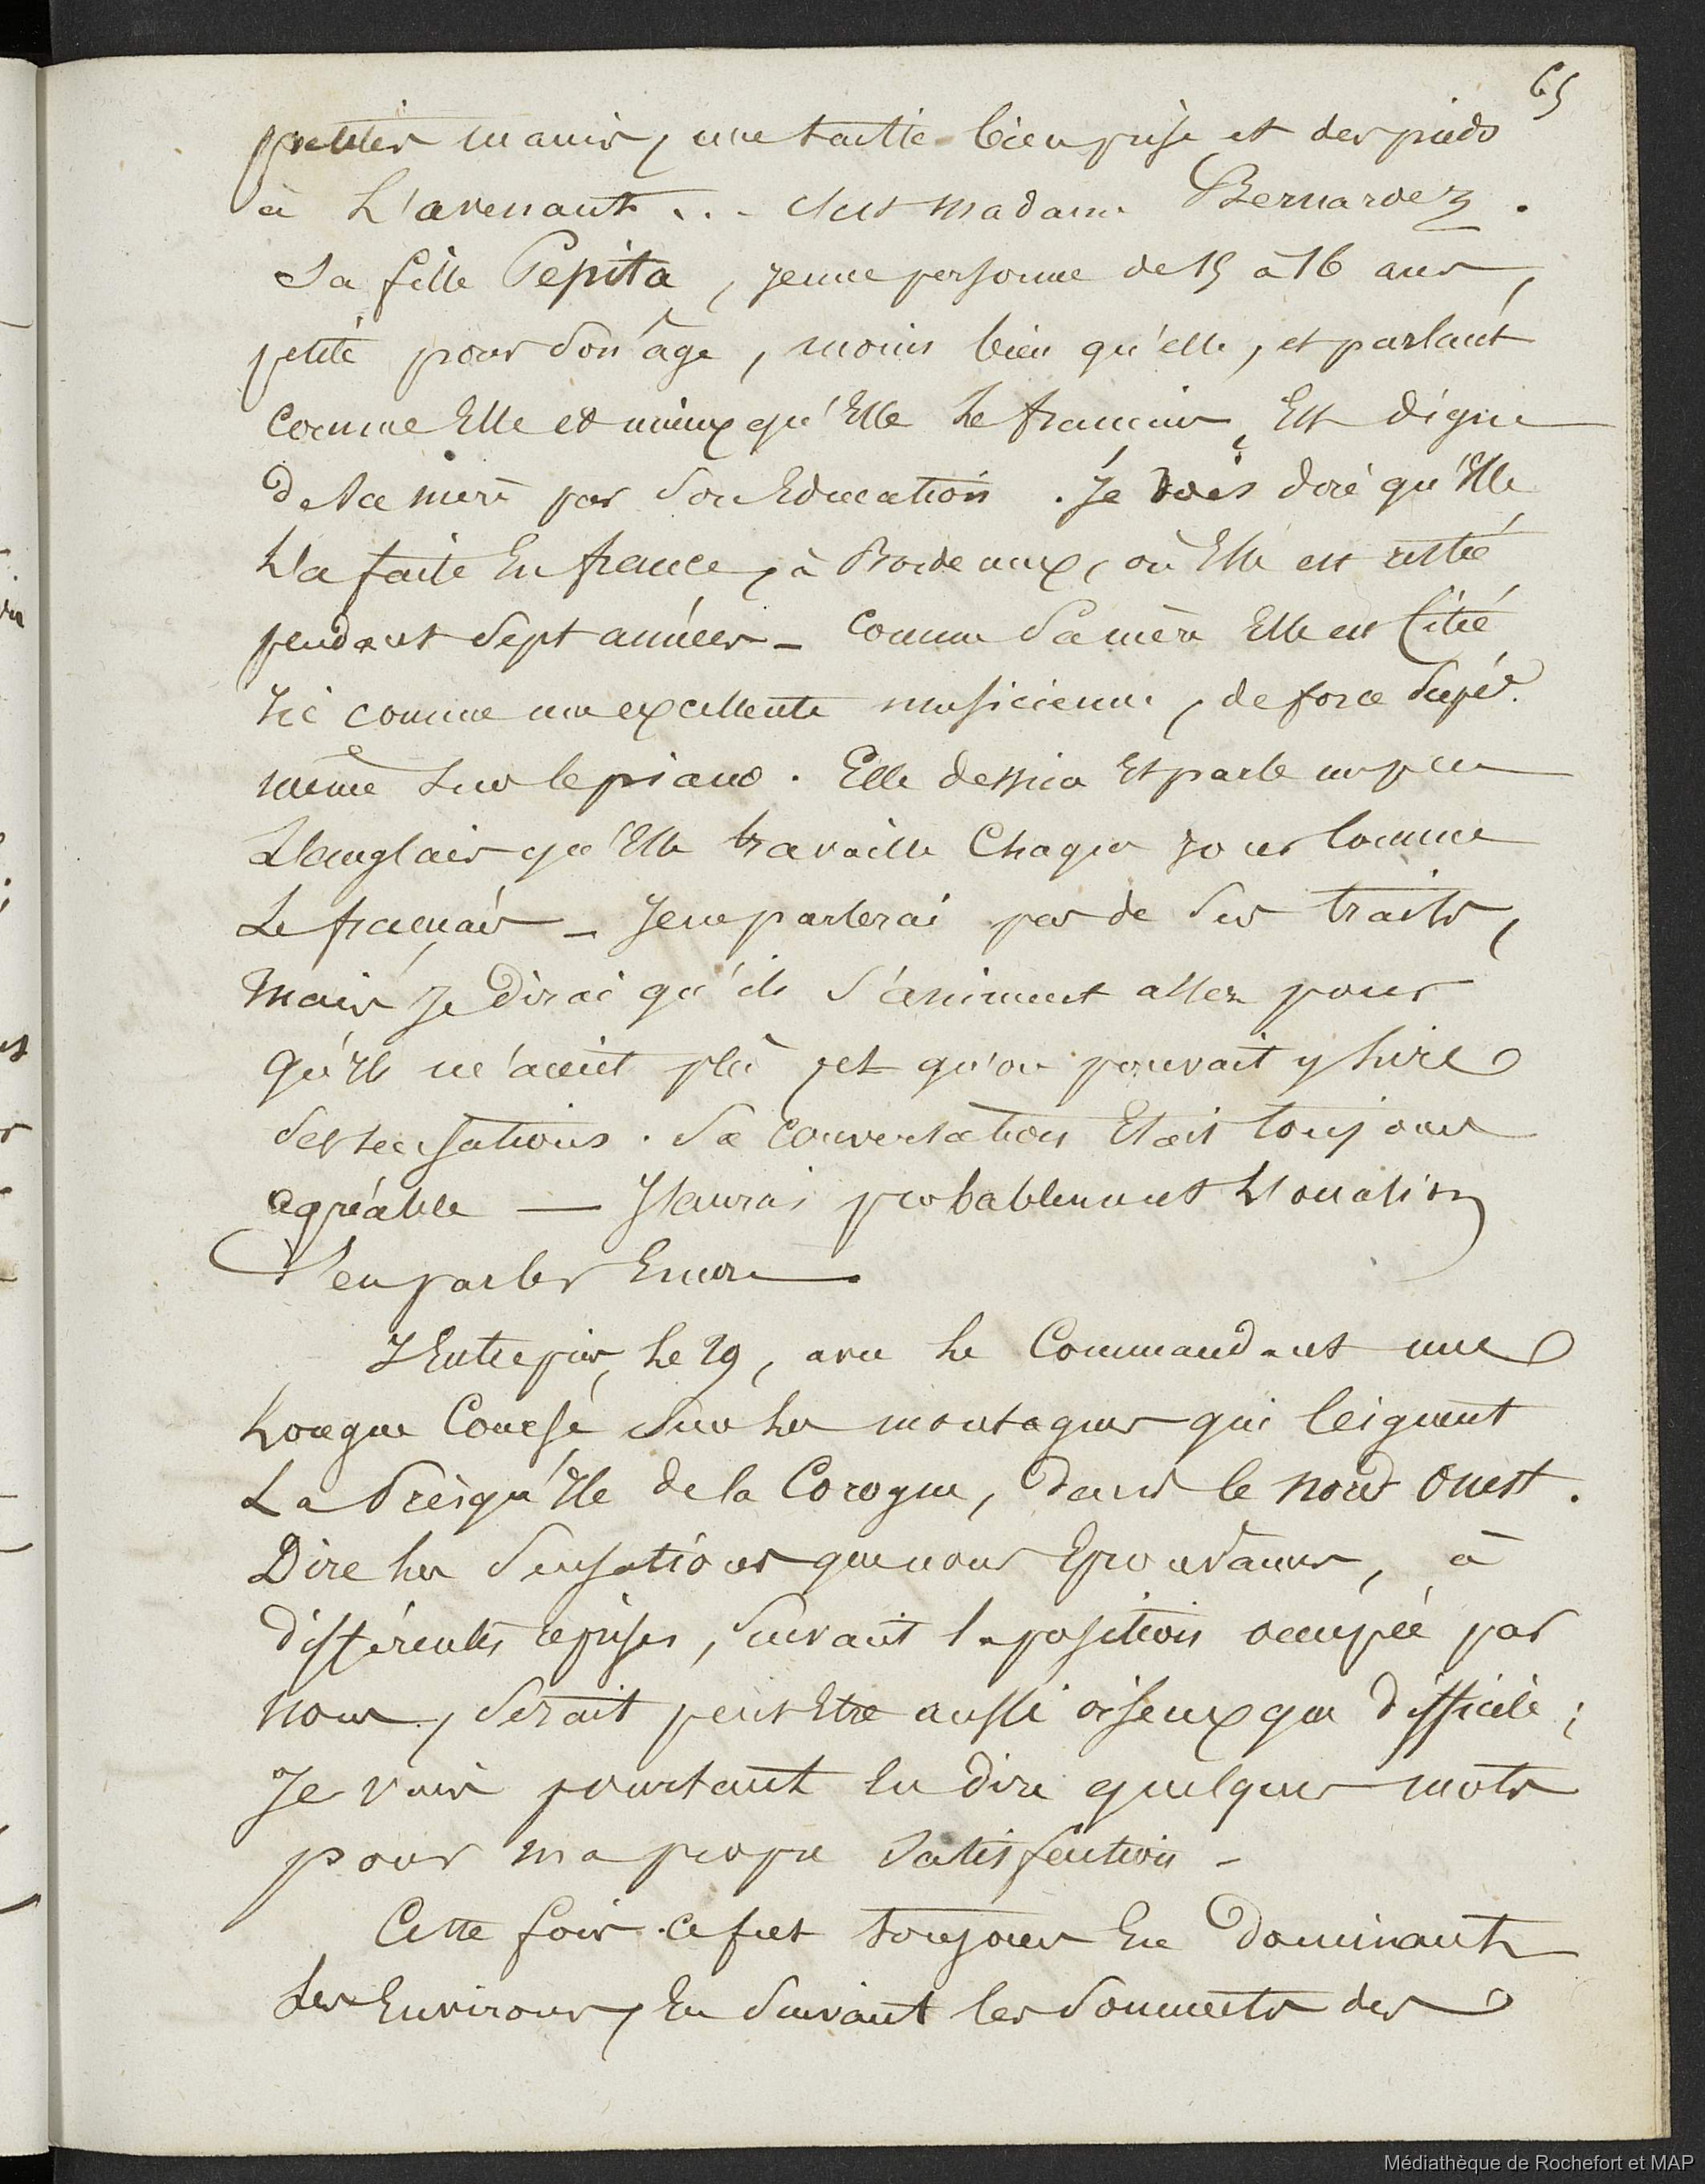 65
petites mains, une taille bien prise et des pieds
à L'avenant... C'est madame Bernardez.
Sa fille Pepita, jeune personne de 15 à 16 ans,
petite pour son âge, moins bien qu'elle, et parlant
comme Elle et mieux qu'Elle le français, Est digne
de sa mère par son Education. Je dois dire qu'Elle
L'a faite En france, à Bordeaux, où Elle est restée
pendant Sept années - Comme Sa mère Elle est Citée
Ici comme une excellente musicienne, de force supér.
même sur le piano. Elle dessine Et parle un peu
L'anglais qu'Elle travaille Chaque jour Comme
Le français - Je ne parlerai pas de Ses traits,
Mais Je Dirai qu'ils s'animent assez pour
qu'Ils m'aient plû et qu'on pouvait y Lire
des sensations. Sa Conversation Etait toujours
agréable — J'aurai probablement L'occasion
D'en parler Encore.
J'Entrepris, le 29, avec le Commandant une
Longue Course Sur les montagnes qui Ceignent
La Presqu'Ile de la Corogne, Dans le nord Ouest.
Dire les Sensations que nous Eprouvâmes, à
différentes reprises, Suivant la position occupée par
nous, Serait peut Etre aussi oiseux que difficile;
Je vais pourtant En dire quelques mots
pour ma propre Satisfaction -
Cette fois ce fut toujours En Dominant
Les Environs, En Suivant les Sommets des
Médiathèque de Rochefort et MAP